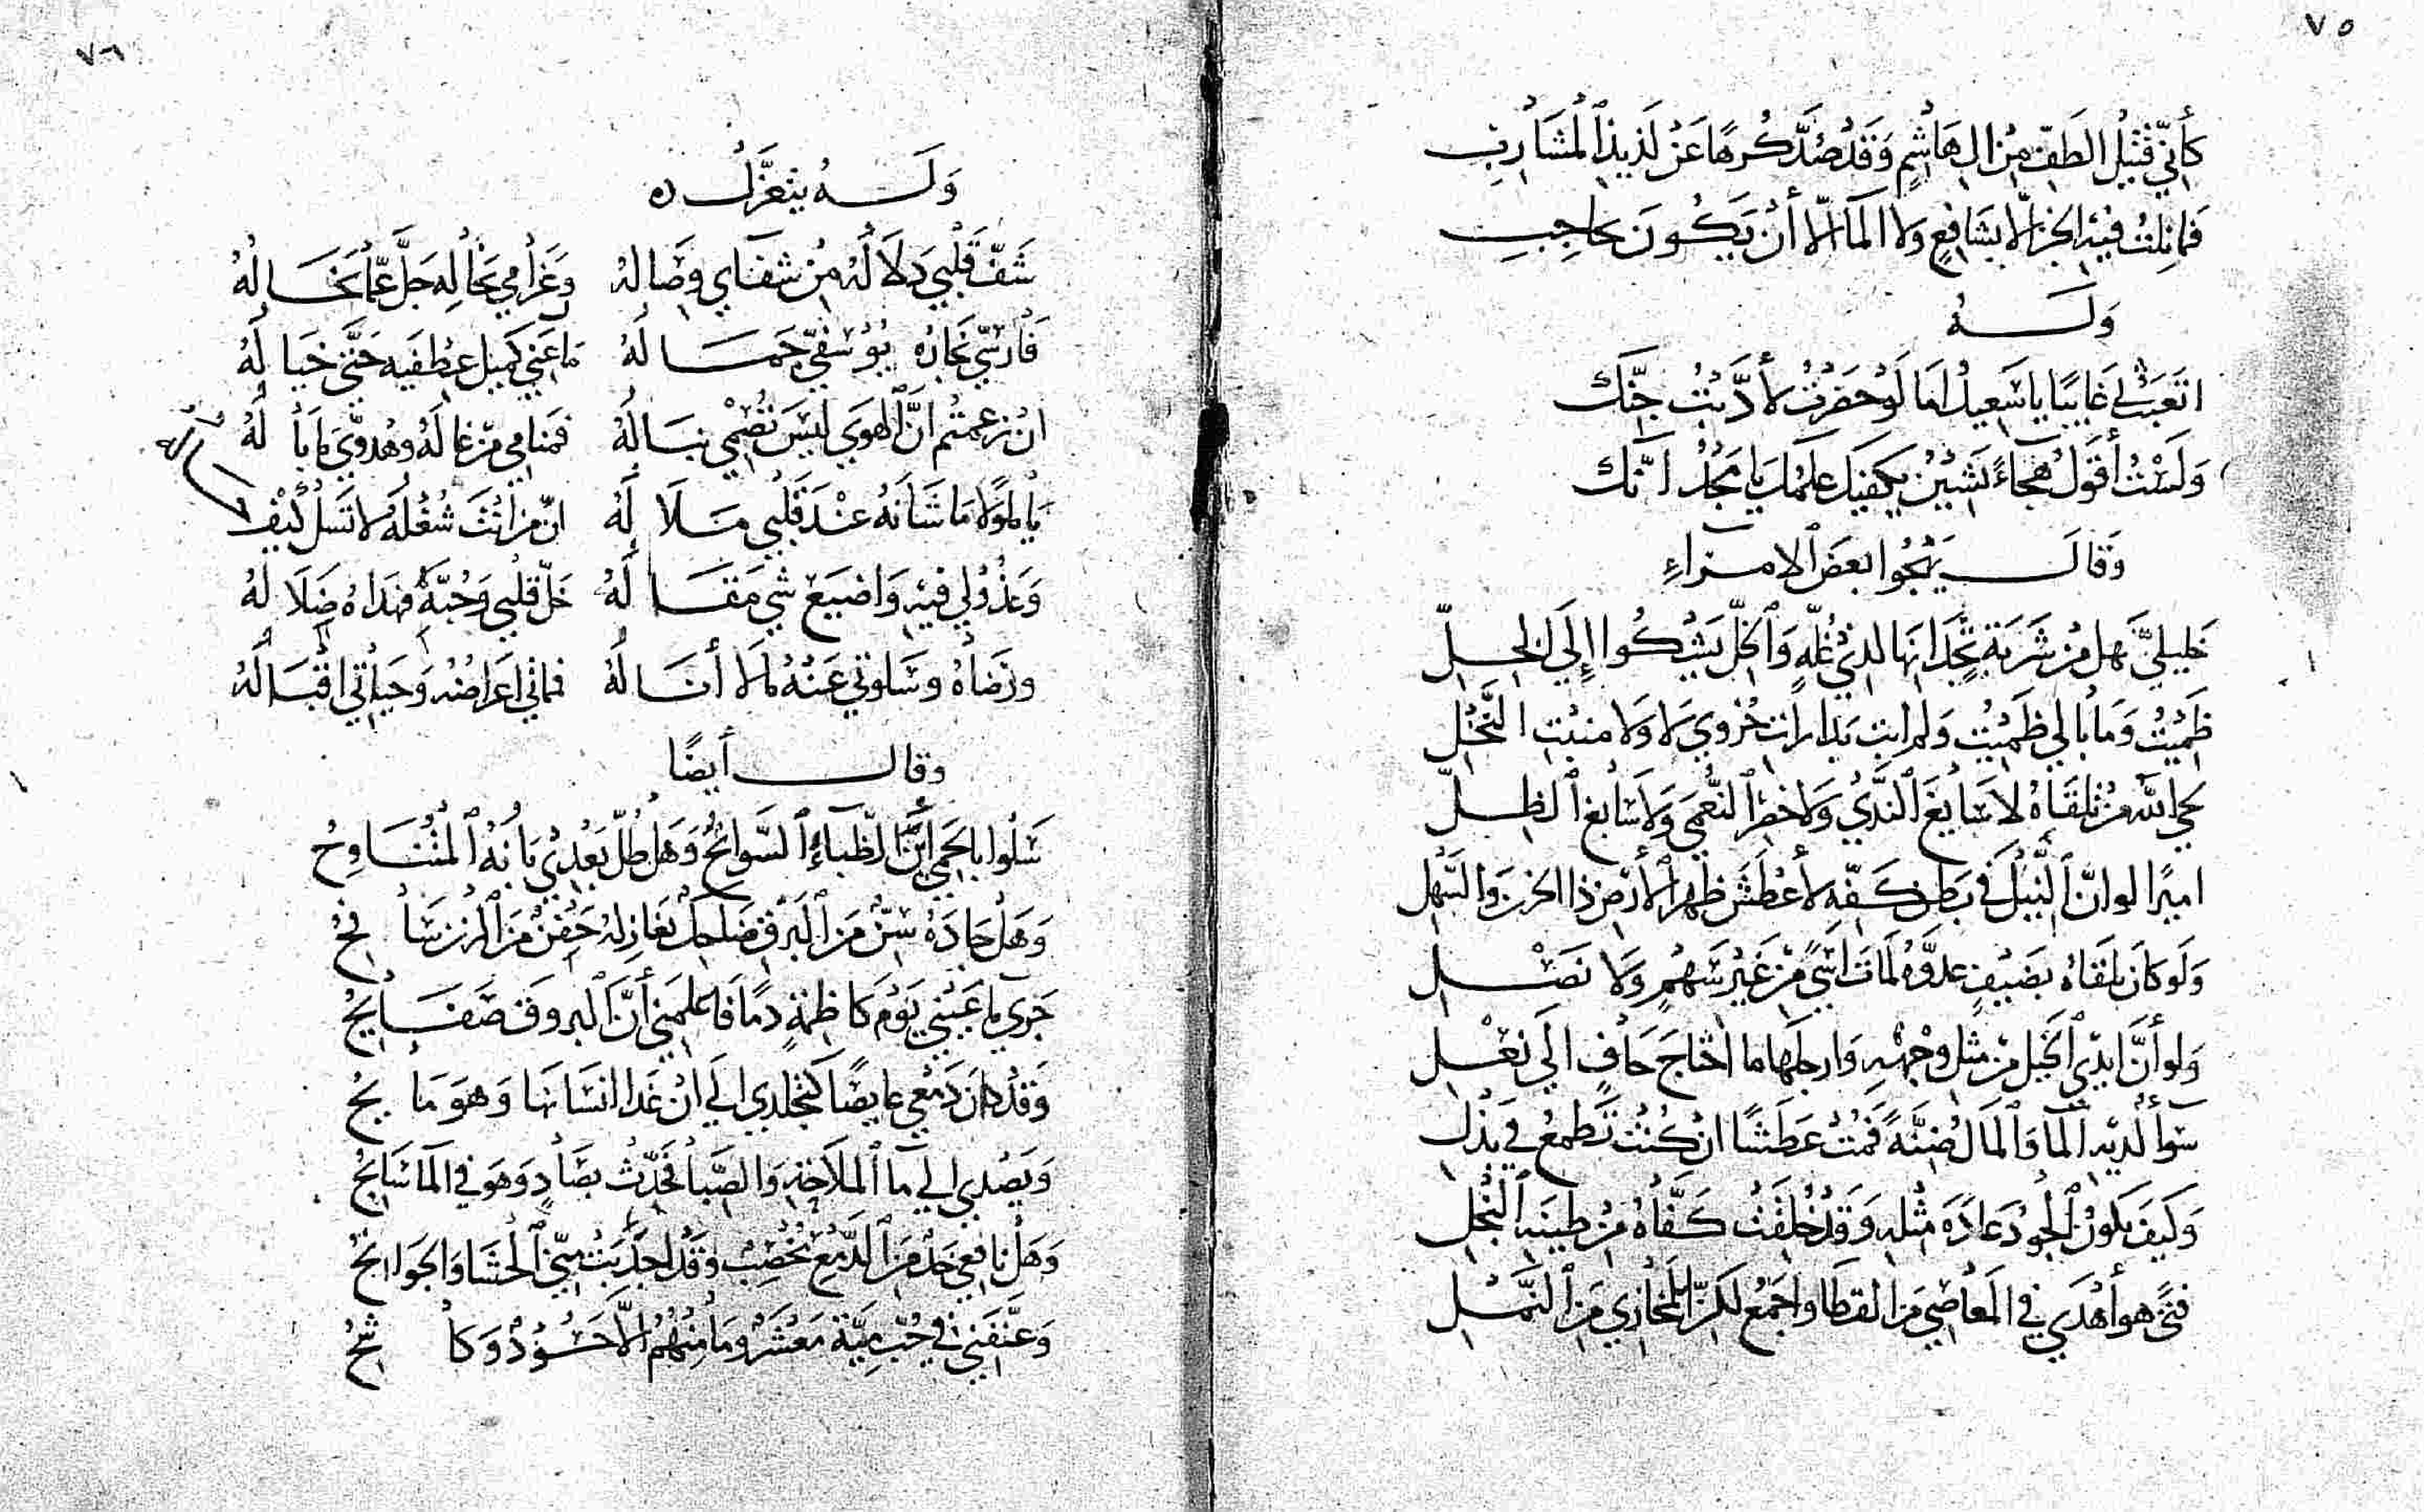 ٧٥
كَأَنِّي قَتِيلُ الطَفِّ مِنْ الِ هَاشِمٍ وَقَدْ صُدَّ كُرْهًا عَنْ لَذِيذِ الْمَشَارِبِ
فما نِلتُ فيه الخبز الّا بشَافِعٍ ولا المآ الّا أنْ يَكُونَ بحاجِبِ
وَلَهُ
اتعَبَثُ بي غَايبًا يا سَعِيدُ امَا لَوْ حَضَرْتُ لأَدَّبْتُ جِنَّك
وَلَسْتُ أقولُ هجآءً يَشِيْنُ يكفيك علمك يا مجدُ انّك
وَقَالَ يَهْجُوا بعَضَ الامرآءِ
خَليليَّ هل مِنْ شَرْبَةٍ تجدانها لذي غُلّهٍ وَالخِلّ يَشْكُوا إلَي الخِلِّ
ظَمِيْتُ وَمَا بالي ظَمِيْتُ وَلم ابت بدارات حُزوي لا وَلا منبت النَّخْلِ
لحي اللَه مَنْ تلقَاهُ لا سَابغَ النَّدَي وَلا خَضِرَ النُّعمَي وَلا سَابغ الظِلِّ
اميرًا لو انَّ النِّيلَ في بَطن كفّهِ لأعْطَشَ ظهر الأرض ذا الحزن وَالسَّهل
وَلَو كَان يلقَاهُ بضَيفٍ عدوّهُ لمَات اسًي مِن غَيْر سَهْمٍ وَلا نَصْلِ
وَلو أنَّ ايدي الخَيل مِن مثل وجههِ وَارجلَها ما احتاجَ حَافٍ الَي نعْلِ
سَوآ لديه المآ وَالمَال ضِنَّةً فَمُتْ عَطشًا ان كُنتْ تَطمعُ في بذل
وَكَيفَ يكون الجودُ عادَةَ مثله وَقَدْ خُلِقَتْ كَفّاهُ مِنْ طينه البُخْلِ
فتًي هو أهْدَي في المَعَاصِي مِنَ القطا واجمعُ لكن للمخازي مِنَ النَّمْلِ
٧٦
وَلَهُ يتغزَّلُ
شَفَّ قَلْبي دَلَالُهُ مِنْ شفَاي وِصَالهُ وَغَرامي بخَالِهِ جَلَّ عمّا يخَالهُ
فَارسِيّ نجَارُهُ يُوسُفِيّ جمَالهُ مَا عَنِي كميل عِطْفَيه حَتَّي خَيالهُ
انْ زعمتُم انَّ الهوَي لَيْسَ تُصْمي نبَالهُ فمنامي مَن غالَهُ وهُدوّيَ مَا بَالهُ
يا ملولًا مَا شَانَهُ عنْدَ قَلْبي مَلَالهُ انّ من انْتَ شُغْلَهُ لا تَسَل كَيْفَ
حاله
وَعَذُولي فيهِ وَاضيَعُ شي مَقَالهُ خَلّ قلبي وَحُبّهُ فهُدَاهُ ضَلَالهُ
ورضَاهُ وسَلوَتي عَنْهُ مَا لا أنَالُهُ فمماتي اعراضُهُ وَحيَاتي اقْبَالهُ
وقال أيضًا
سَلُوا بالحِمَي أيْنَ الظِّباءُ السَّوانحُ وَهَل طُلّ بعْدِي بَانُهُ المُتَنَاوحُ
وَهَل جَادَهُ سِنٌّ مَن البَرق ضَاحِكٌ تُغَازله جَفنٌ مَن المُزن سَافِحُ
جَرَي ما عَيْني يَوْمَ كَاظِمَةٍ دمًا فَاعلمَني أنَّ البروقَ صَفَايحُ
وَقَدْ كَانَ دَمْعي غايضًا كتجلدي الَي انْ غَدا انسَانهَا وَهوَ مَايحُ
وَيَصْدي الي مآ الملاحَةِ وَالصِّبا فَحَدّثْ بصَادٍ وَهوَ في المآ سَابحُ
وَهَل نافعي خدٌّ مِنَ الدَّمْعِ مُخْصِبٌ وَقَدْ اجْدَبَتْ مِنّي الحَشَا وَالجَوانحُ
وَعَنَّفَني في حُبّ مَيّةَ مَعْشَرٌ وَمَا مِنْهُم الّا حَسُودٌ وَكاشحُ